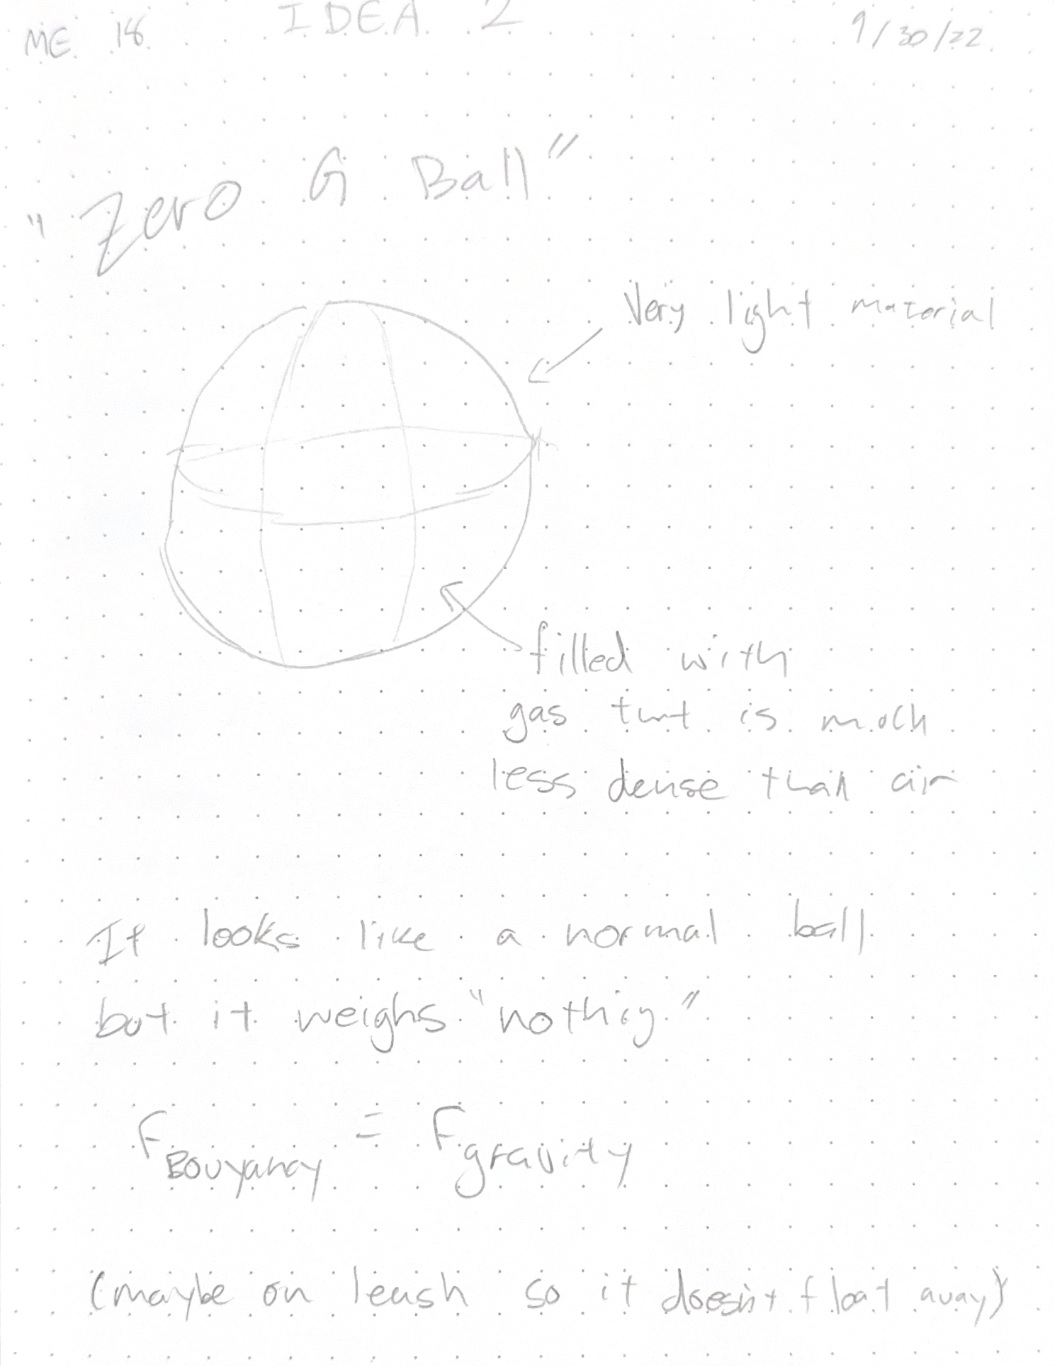 ME 18 IDEA 2 9/30/22
"Zero G Ball"
Very light material
filled with
gas that is much
less dense than air
It looks like a normal ball
but it weighs "nothing"
F Bouyancy = F gravity
(maybe on leash so it doesn't float away)